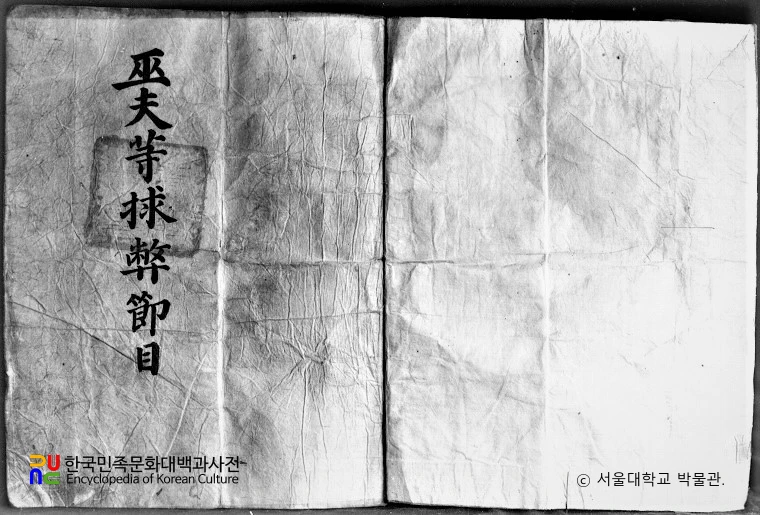 巫夫等捄弊節目
한국민족문화대백과사전
Encyclopedia of Korean Culture
ⓒ 서울대학교 박물관.